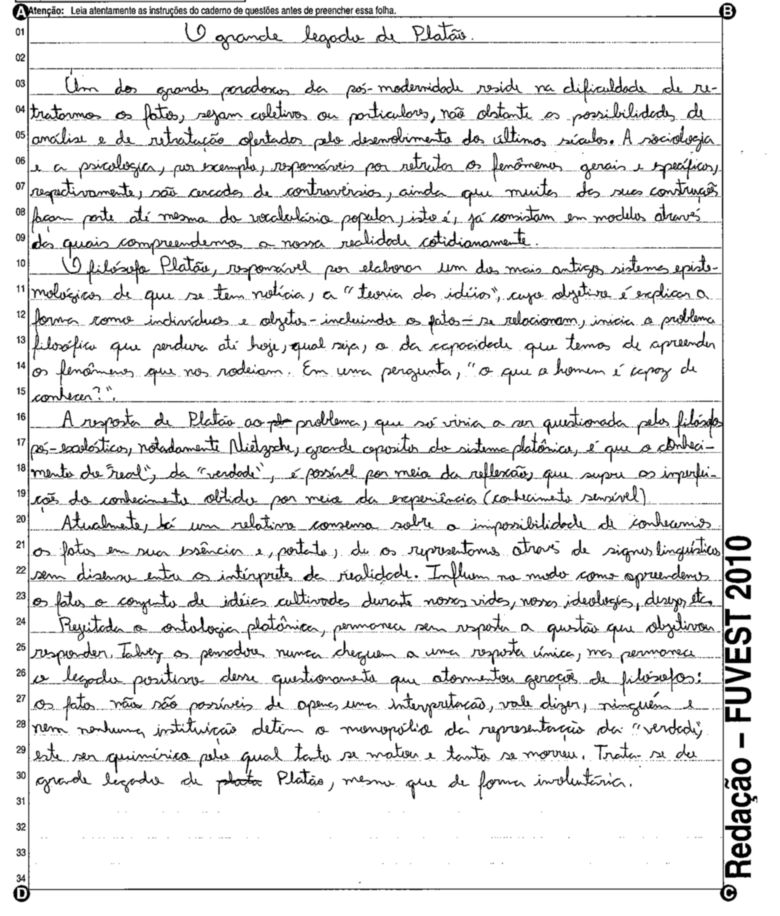 Atenção: Leia atentamente as instruções do caderno de questões antes de preencher essa folha.
A
B
01 O grande legado de Platão.
02
03 Um dos grandes paradoxos da pós-modernidade reside na dificuldade de re-
04 tratarmos os fatos, sejam coletivos ou particulares, não obstante as possibilidades de
05 análise e de retratação ofertadas pelo desenvolvimento dos últimos séculos. A sociologia
06 e a psicologia, por exemplo, responsáveis por retratar os fenômenos gerais e específicos,
07 respectivamente, são cercadas de controvérsias, ainda que muitas das suas construções
08 façam parte até mesmo do vocabulário popular, isto é, já consistam em modelos através
09 dos quais compreendemos a nossa realidade cotidianamente.
10 O filósofo Platão, responsável por elaborar um dos mais antigos sistemas episte-
11 mológicos de que se tem notícia, a "teoria das idéias", cujo objetivo é explicar a
12 forma como indivíduos e objetos - incluindo os fatos - se relacionam, inicia o problema
13 filosófico que perdura até hoje, qual seja, o da capacidade que temos de apreender
14 os fenômenos que nos rodeiam. Em uma pergunta, "o que o homem é capaz de
15 conhecer?".
16 A resposta de Platão ao problema, que só viria a ser questionada pelos filósofos
17 pós-escolásticos, notadamente Nietzsche, grande opositor do sistema platônico, é que o conheci-
18 mento do "real", da "verdade", é possível por meio da reflexão, que supre as imperfei-
19 ções do conhecimento obtido por meio da experiência (conhecimento sensível)
20 Atualmente, há um relativo consenso sobre a impossibilidade de conhecermos
21 os fatos em sua essência e, portanto, de os representarmos através de signos linguísticos
22 sem dissenso entre os intérpretes da realidade. Influem no modo como apreendemos
23 os fatos o conjunto de idéias cultivadas durante nossas vidas, nossas ideologias, desejos, etc.
24 Rejeitada a ontologia platônica, permanece sem resposta a questão que objetivou
25 responder. Talvez os pensadores nunca cheguem a uma resposta única, mas permanece
26 o legado positivo desse questionamento que atormentou gerações de filósofos:
27 os fatos não são passíveis de apenas uma interpretação, vale dizer, ninguém e
28 nem nenhuma instituição detém o monopólio da representação da "verdade",
29 este ser quimérico pelo qual tanto se matou e tanto se morreu. Trata-se do
30 grande legado de plata Platão, mesmo que de forma involuntária.
31
32
33
34
D
C
Redação – FUVEST 2010